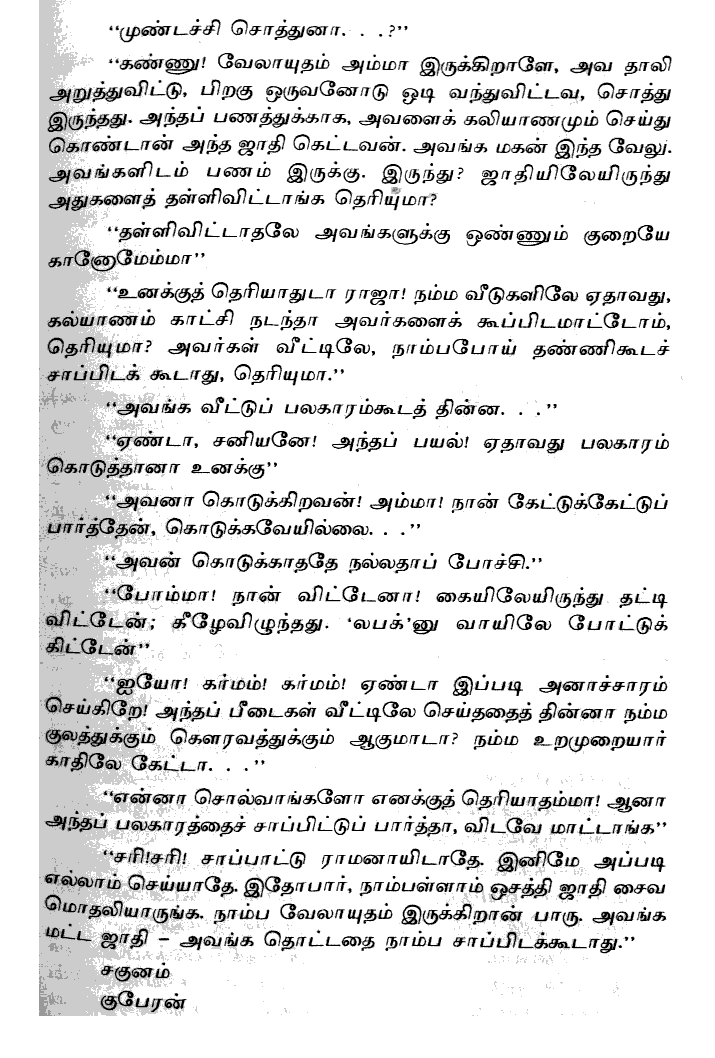 “முண்டச்சி சொத்துனா. . .?”
“கண்ணு! வேலாயுதம் அம்மா இருக்கிறாளே, அவ தாலி
அறுத்துவிட்டு, பிறகு ஒருவனோடு ஒடி வந்துவிட்டவ, சொத்து
இருந்தது. அந்தப் பணத்துக்காக, அவளைக் கலியாணமும் செய்து
கொண்டான் அந்த ஜாதி கெட்டவன். அவங்க மகன் இந்த வேலு.
அவங்களிடம் பணம் இருக்கு. இருந்து? ஜாதியிலேயிருந்து
அதுகளைத் தள்ளிவிட்டாங்க தெரியுமா?
“தள்ளிவிட்டாதலே அவங்களுக்கு ஒண்ணும் குறையே
கானோமேம்மா”
“உனக்குத் தெரியாதுடா ராஜா! நம்ம வீடுகளிலே ஏதாவது,
கல்யாணம் காட்சி நடந்தா அவர்களைக் கூப்பிடமாட்டோம்,
தெரியுமா? அவர்கள் வீட்டிலே, நாம்பபோய் தண்ணிகூடச்
சாப்பிடக் கூடாது, தெரியுமா.”
“அவங்க வீட்டுப் பலகாரம்கூடத் தின்ன. . .”
“ஏண்டா, சனியனே! அந்தப் பயல்! ஏதாவது பலகாரம்
கொடுத்தானா உனக்கு”
“அவனா கொடுக்கிறவன்! அம்மா! நான் கேட்டுக்கேட்டுப்
பார்த்தேன், கொடுக்கவேயில்லை. . .”
“அவன் கொடுக்காததே நல்லதாப் போச்சி.”
“போம்மா! நான் விட்டேனா! கையிலேயிருந்து தட்டி
விட்டேன்; கீழேவிழுந்தது. ‘லபக்’னு வாயிலே போட்டுக்
கிட்டேன்”
“ஐயோ! கர்மம்! கர்மம்! ஏண்டா இப்படி அனாச்சாரம்
செய்கிறே! அந்தப் பீடைகள் வீட்டிலே செய்ததைத் தின்னா நம்ம
குலத்துக்கும் கௌரவத்துக்கும் ஆகுமாடா? நம்ம உறமுறையார்
காதிலே கேட்டா. . .”
“என்னா சொல்வாங்களோ எனக்குத் தெரியாதம்மா! ஆனா
அந்தப் பலகாரத்தைச் சாப்பிட்டுப் பார்த்தா, விடவே மாட்டாங்க”
“சரி!சரி! சாப்பாட்டு ராமனாயிடாதே. இனிமே அப்படி
எல்லாம் செய்யாதே. இதோபார், நாம்பள்ளாம் ஒசத்தி ஜாதி சைவ
மொதலியாருங்க. நாம்ப வேலாயுதம் இருக்கிறான் பாரு. அவங்க
மட்ட ஜாதி – அவங்க தொட்டதை நாம்ப சாப்பிடக்கூடாது.”
சகுனம்
குபேரன்